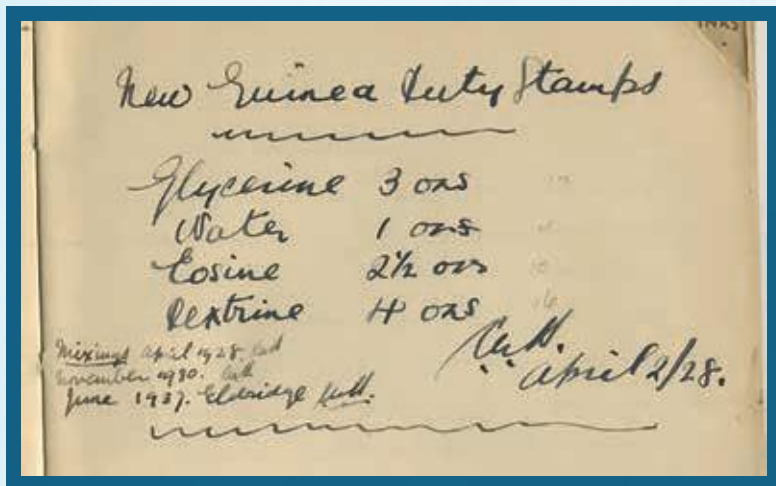 INKS
New Guinea Duty Stamps
Glycerine 3 ozs
Water 1 ozs
Eosine 2½ ozs
Dextrine 4 ozs
April 2/28.
Mixings April 1928.
November 1930.
June 1937. Eldridge